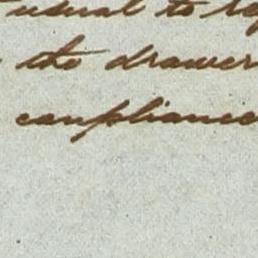 usual to
the drawer
compliance